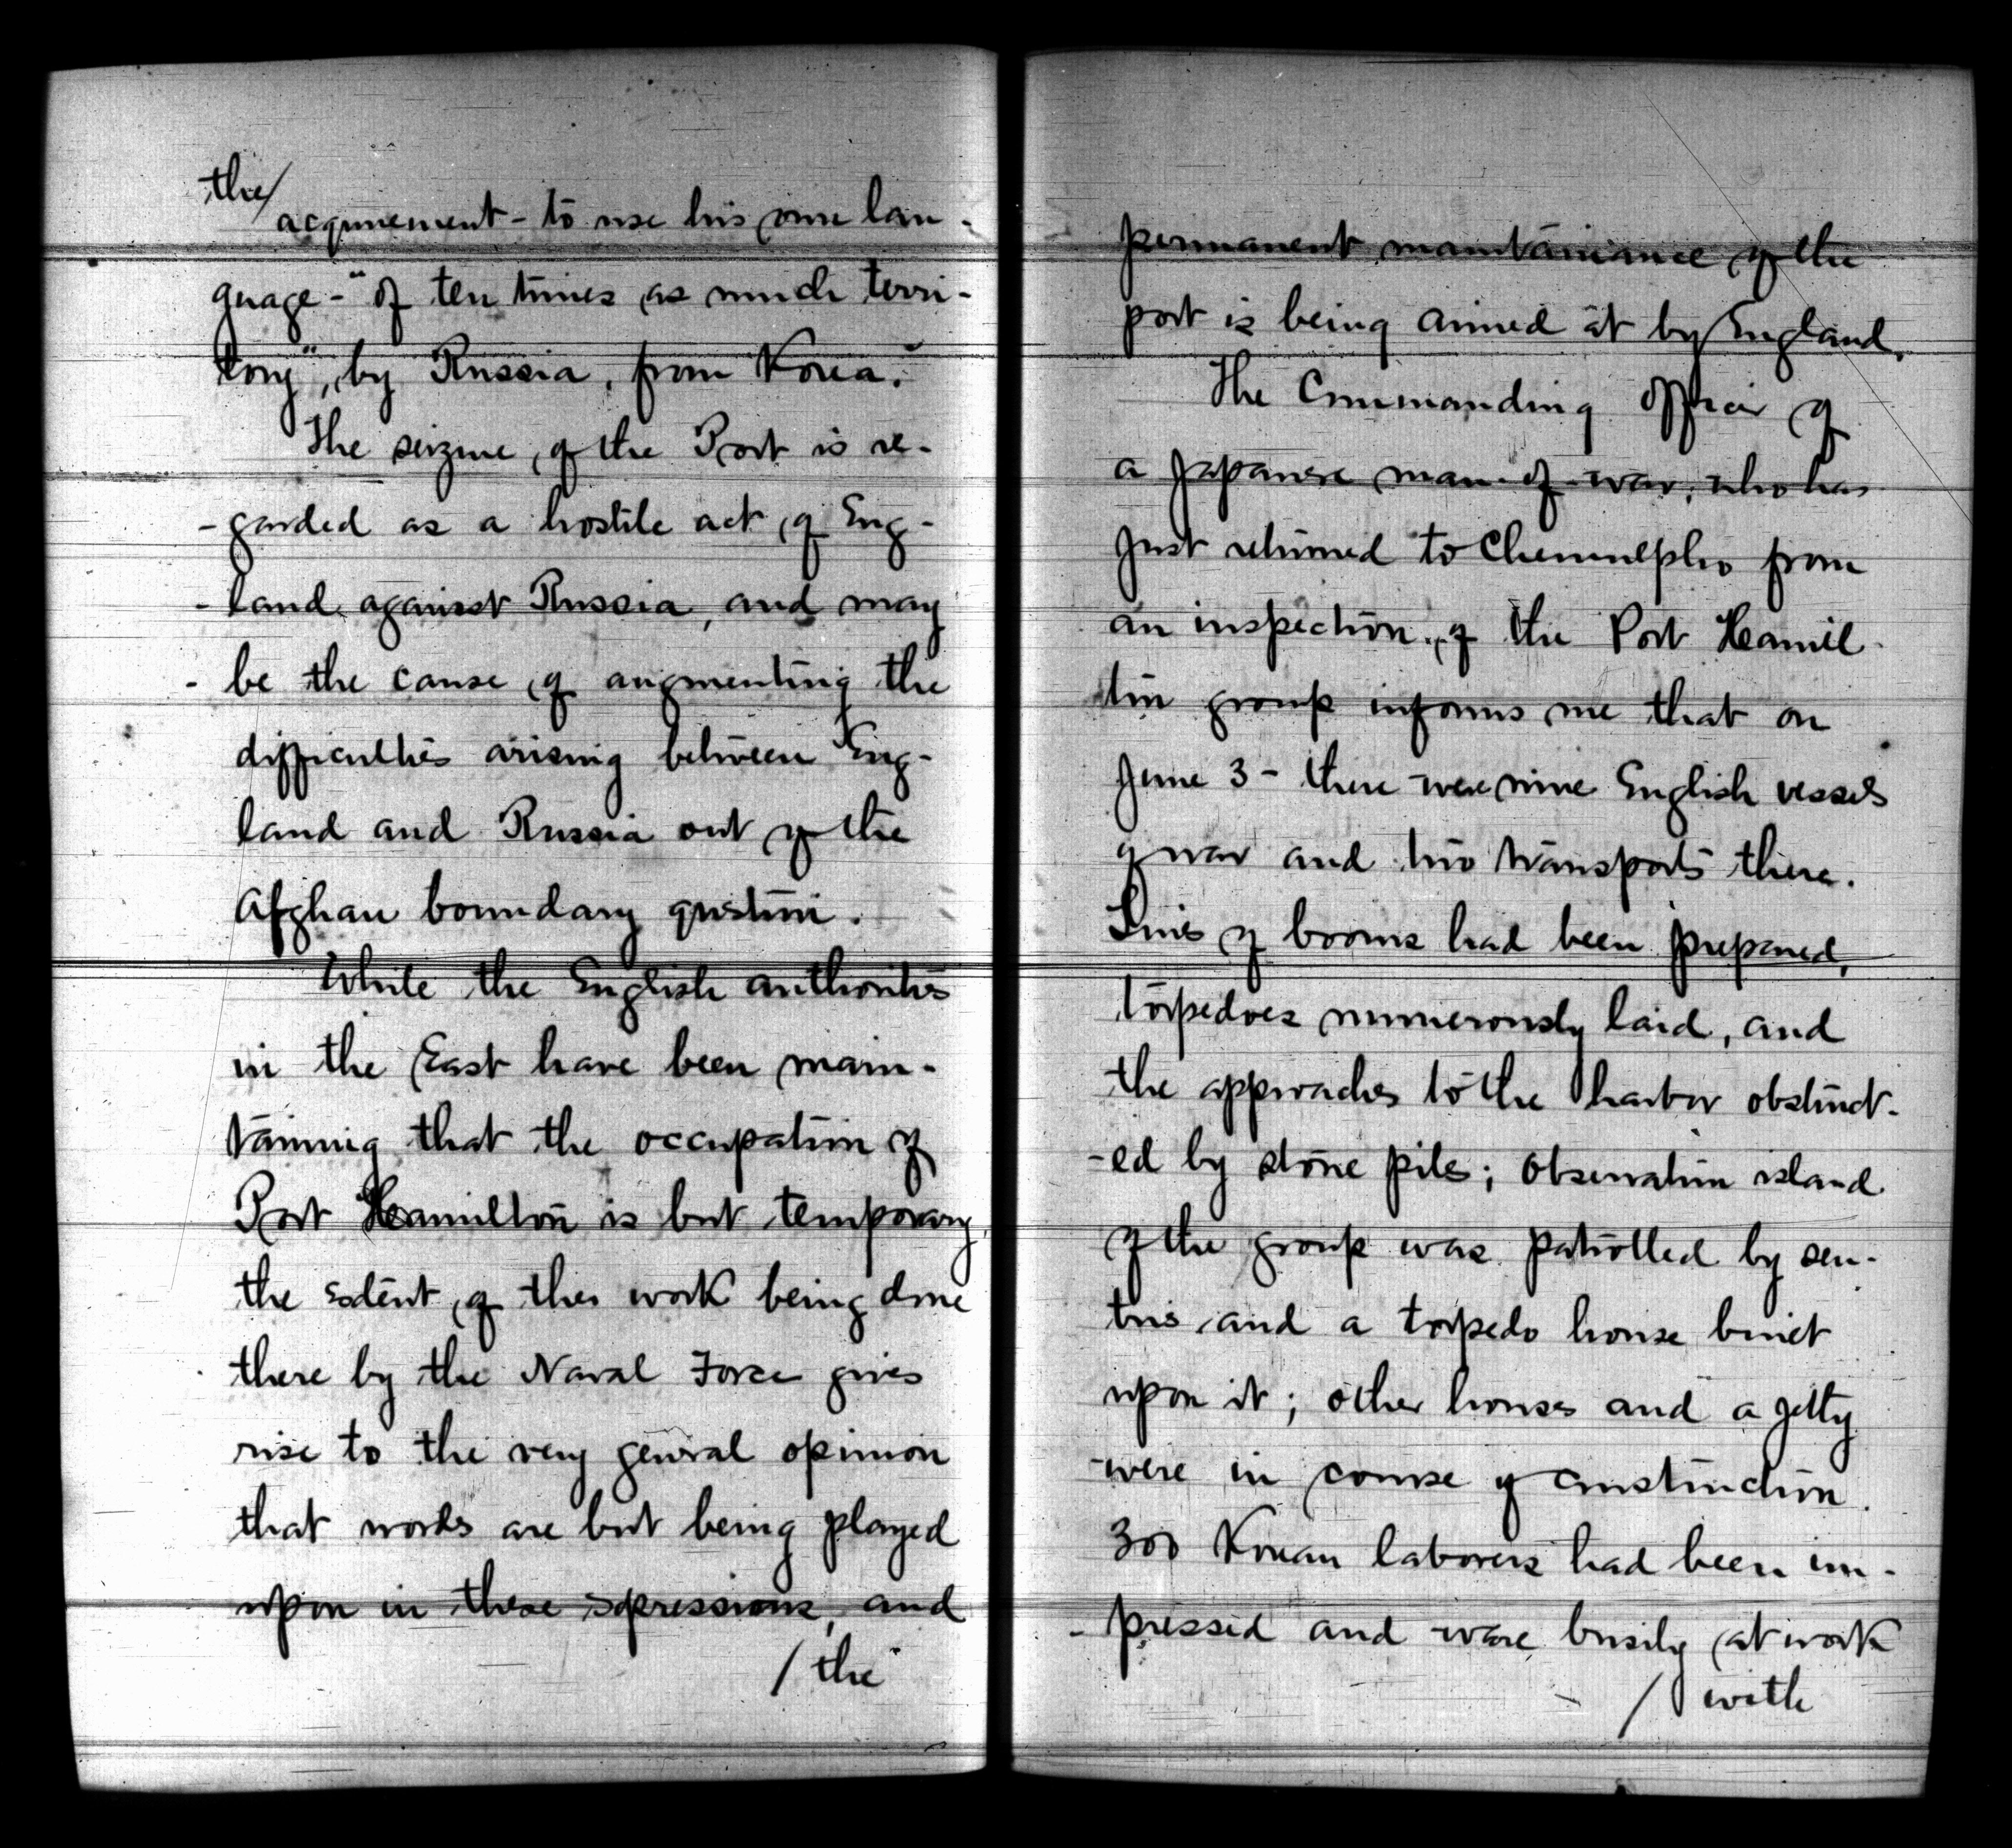 the/
acquirement - to use his own lan-
guage - "of ten times as much terri-
tory", by Russia, from Korea."
The seizure of the Port is re-
-garded as a hostile act of Eng-
-land against Russia, and may
- be the cause of augmenting the
difficulties arising between Eng-
land and Russia out of the
Afghan boundary question.
While the English authorities
in the East have been main-
taining that the occupation of
Port Hamilton is but temporary,
the extent of the work being done
there by the Naval Force gives
rise to the very general opinion
that words are but being played
upon in these expressions, and
/ the
permanent maintainance of the
port is being aimed at by England.
The Commanding Officer of
a Japanese man-of-war, who has
just returned to Chemulpho from
an inspection of the Port Hamil-
ton group informs me that on
June 3 - there were nine English vessels
of war and two transports there.
Lines of booms had been prepared,
torpedoes numerously laid, and
the approaches to the harbor obstruct-
-ed by stone piles; Observation island
of the group was patrolled by sen-
tries and a torpedo house built
upon it; other houses and a jetty
were in course of construction.
300 Korean laborers had been im-
- pressed and were busily at work
/ with